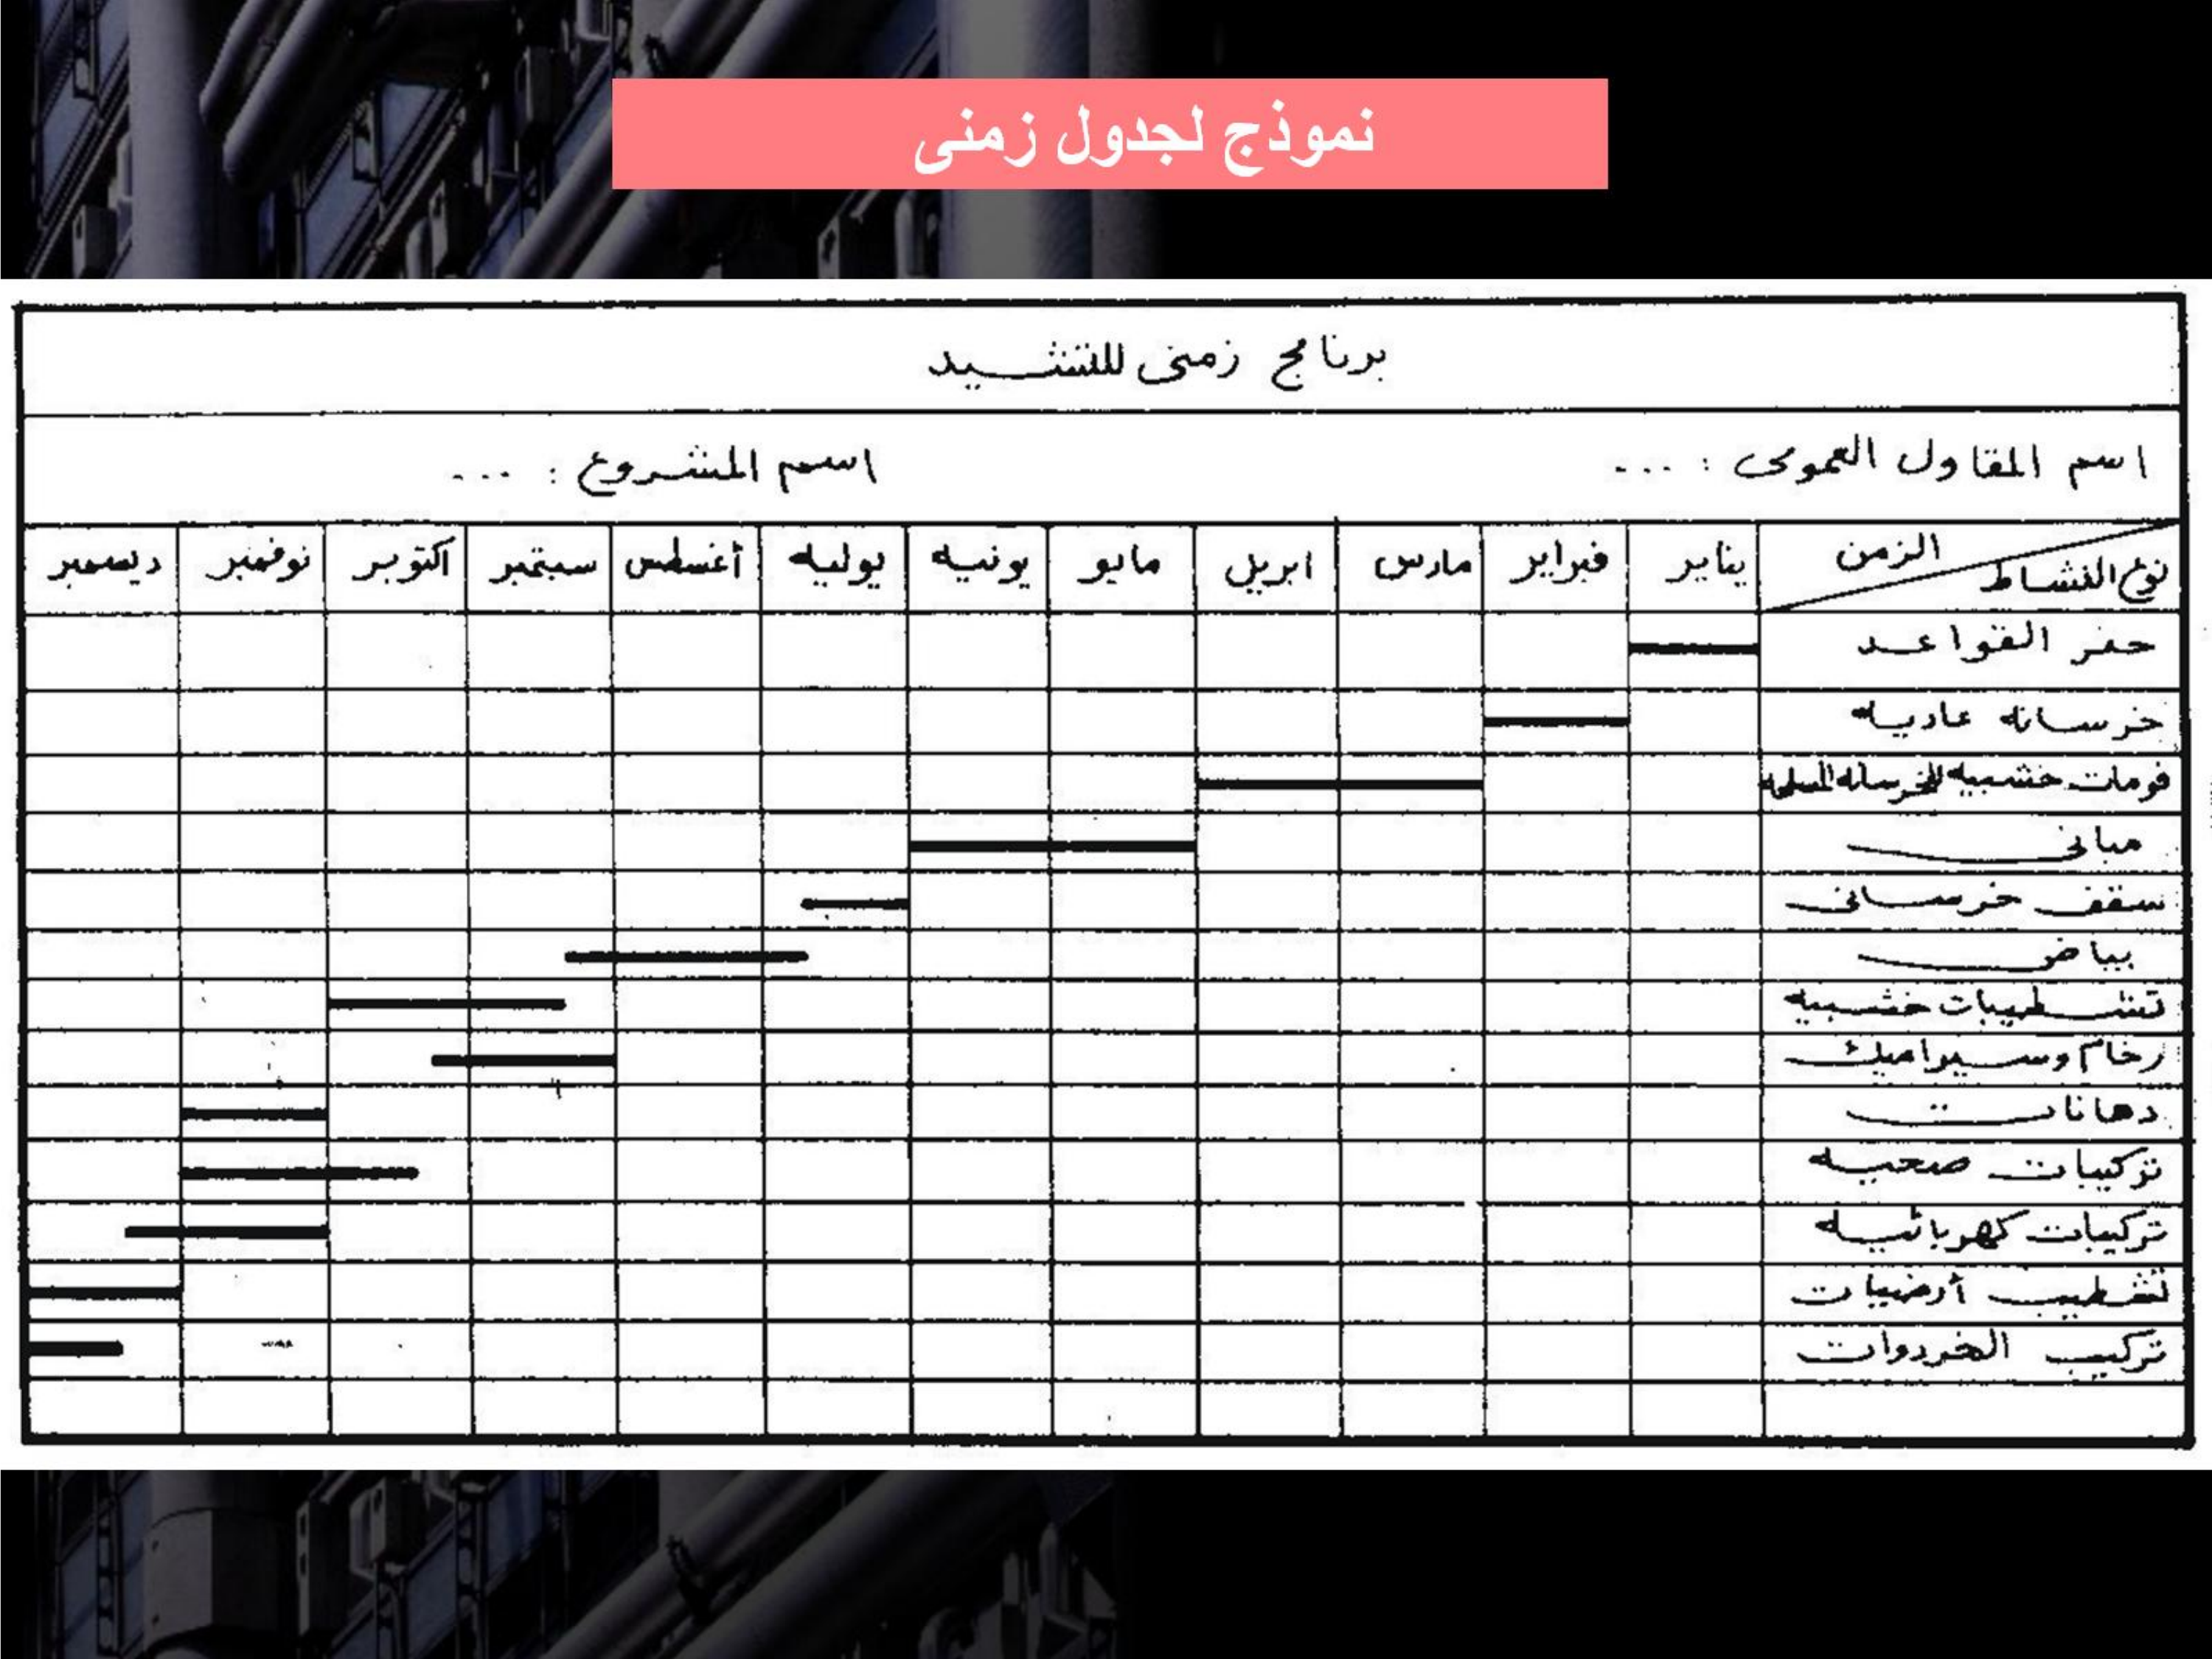 نموذج لجدول زمنى
برنامج زمنى للتشييد
اسم المقاول العمومى : ... اسم المشروع : ...
الزمن
نوع النشاط
يناير فبراير مارس ابريل مايو يونيه يوليه أغسطس سبتمبر اكتوبر نوفمبر ديسمبر
حفر القواعد
خرسانه عاديه
فومات خشبيه للخرسانه المسلحه
مبانى
سقف خرسانى
بياض
تشطيبات خشبيه
رخام وسيراميك
دهانات
تركيبات صحيه
تركيبات كهربائيه
تشطيب أرضيات
تركيب الخردوات